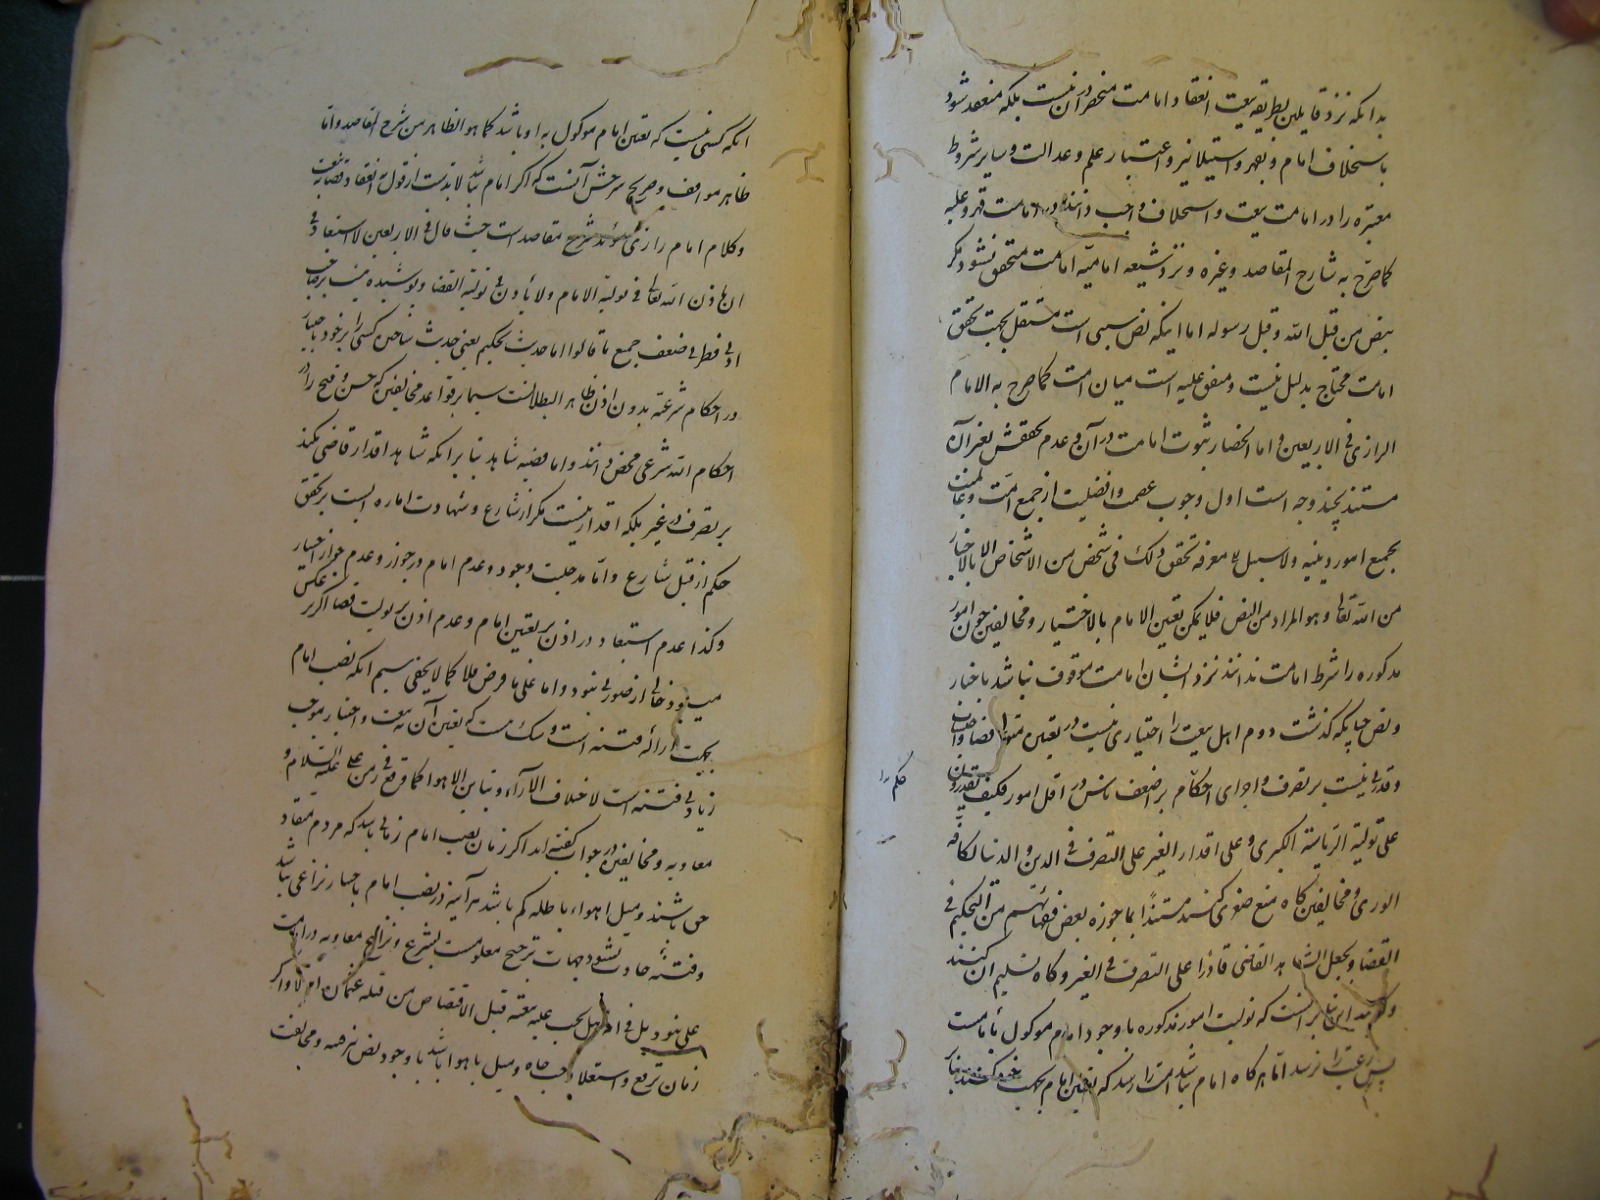 بدانکه نزد قایلین بطریقه بیعت انعقاد امامت منحصر در آن نیست بلکه منعقد شود
باستخلاف امام و بقهر و استیلا نیز و اعتبار علم و عدالت و سایر شروط
معتبره را در امامت بیعت و استخلاف واجب دانند در امامت قهر و غلبه
کما صرّح به شارح المقاصد و غیره و نزد شیعه امامیّه امامت متحقق نشود مگر
بنص من قبل اللّه و قبل رسوله اما اینکه نص سببی است مستقل بجهت تحقق
امامت محتاج بدلیل نیست و متفق علیه است میان امت کما صرح به الامام
الرازی فی الاربعین و اما انحصار ثبوت امامت در آن و عدم تحققش بغیر آن
مستند بچند وجه است اول وجوب عصمت و افضلیت از جمیع امّت و عالمیت
بجمیع امور دینیه و لا سبیل الی معرفة تحقق ذلک فی شخص من الاشخاص الا بالاخبار
من اللّه تعالی و هو المراد من النص فلا یمکن تعین الامام بالاختیار و مخالفین چون امور
مذکوره را شرط امامت ندانند نزد ایشان امامت موقوف نباشد باخبار
و نص چنانکه گذشت دوم اهل بیعت را اختیاری نیست در تعیین
و قدرتی نیست بر تصرف و اجرای احکام بر اضعف ناس در اقل امور فکیف یقدرون
حکم
علی تولیة الرّیاسة الکبری و علی اقدار الغیر علی التصرف فی الدین و الدنیا لکافّه
الوری و مخالفین گاه منع صغری کنند مستندًا بما جوزه بعض فقهائهم من التحکیم فی
القضا و بجعل الشاهد القاضی قادرًا علی التصرف فی الغیر و گاه تسلیم آن کنند
و گویند این بنابر آنست که تولیت امور مذکوره با وجود امام موکول بامامت
پس رعیت را نرسد امّا هرگاه امام نباشد امت را رسد که تعین امام بجهت خود کنند بنابر
آنکه کسی نیست که تعین امام موکول به او باشد کما هو الظاهر من شرح المقاصد و اما
ظاهر مواقف و صریح شرحش آنست که اگر امام نباشد لابدست از قول به انعقاد قضا به بیعت
و کلام امام رازی مؤید شرح مقاصد است حیث قال فی الاربعین لا استبعاد فی
ان یأذن اللّه تعالی فی تولیة الامام و لا یأذن فی تولیة القضا و پوشیده نیست بر صاحب
ادنی فطرتی ضعف جمیع ما قالوا اما حدیث تحکیم یعنی حدیث ساختن کسی را بر خود باختیار
در احکام شرعیّه بدون اذن ظاهر البطلانست سیما بر قواعد مخالفین که حسن و قبح را در
احکام اللّه شرعی محض دانند و اما قضیه شاهد بنا بر آنکه شاهد اقدار قاضی نکند
بر تصرف در غیر بلکه اقدار نیست مگر از شارع و شهادت اماره ایست بر تحقق
حکم از قبل شارع و امّا مدخلیت وجود و عدم امام در جواز و عدم جواز اختیار
و کذا عدم استبعاد در اذن بر تعیین امام و عدم اذن بر تولیت قضا اگر بر عکس
میبود خالی از صورتی نبود و اما علی ما فرض فلا کما لا یخفی سیم آنکه نصب امام
بجهت ازاله فتنه است و شک نیست که تعین آن به بیعت و اختیار موجب
زیادتی فتنه است لاختلاف الآراء و تباین الاهوا کما وقع فی زمن علی علیه السّلام و
معاویه و مخالفین در جواب گفته اند اگر زمان نصب امام زمانی باشد که مردم منقاد
حق باشند و میل اهواء باطله کم باشد هر آینه در نصب امام باختیار نزاعی نباشد
و فتنه حادث نشود جهات ترجیح معلومست بشرع و نزاع معاویه در امامت
علی نبود بل فی انه هل یجب علیه بیعته قبل الاقتصاص من قتله عثمان ام لا و اگر
زمان ترفع و استعلا و حب جاه و میل باهوا باشد با وجود نص نیز فتنه و مخالفت